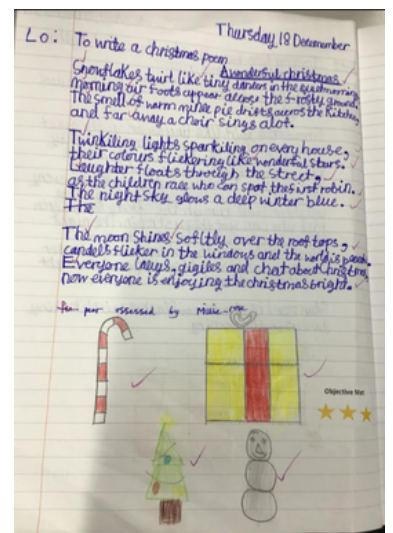 Thursday 18 Decemember
Lo: To write a christmas poem
A wonderful christmas
Snowflakes twirl like tiny dancers in the quiet morning
morning our foots appear accross the frosty ground.
The smell of warm mince pie drifts across the kitchen
and far away a choir sings alot.
Twinkiling lights sparkiling on every house,
their colours flickering like wonderful stars.
Laughter floats through the street,
as the children race who can spot the first robin.
The night sky glows a deep winter blue.
The
The moon shines softly over the rooftops,
candels flicker in the windows and the world is
Everyone laughs, gigiles and chat about christmas,
now everyone is enjoying the christmas bright.
peer assessed by
Objective Met